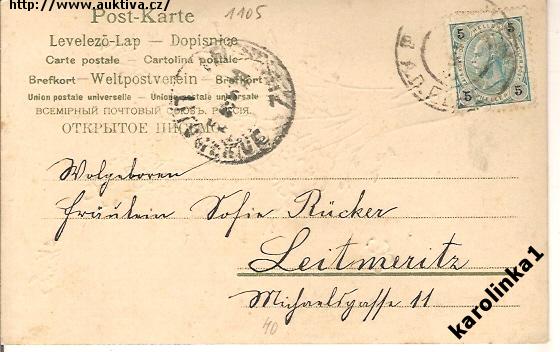 http://www.auktiva.cz/
Post-Karte
1105
Levelező-Lap — Dopisnice
Carte postale — Cartolina postale
Brefkort — Weltpostverein — Brefkort
Union postale universelle — Unione postale universale
ВСЕМІРНЫЙ ПОЧТОВЫЙ СОЮЗЪ. РОССІЯ.
ОТКРЫТОЕ ПИСЬМО
5 5
5 5
Wolgeboren
Fräulein Sofie Rücker
Leitmeritz
Michaelsgasse 11
40
karolinka1